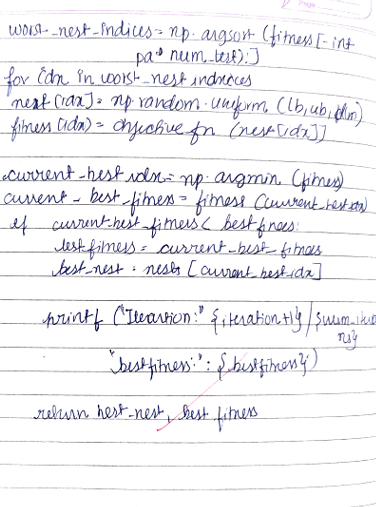 worst_nest_indices = np.argsort (fitness [-int
pa * num_nest):]
for idx in worst_nest indices
nest [idx] = np random.uniform (lb, ub, dim)
fitness [idx) = objective fn (nest [idx]]
current_best idx = np.argmin (fitness)
current_best_fitness = fitness (current_best idx)
if current_best_fitness < best fitness:
best fitness = current_best_fitness
best_nest = nests [current_best_idx]
printf ("Iteration:" {iteration+1}/{num_itera
ns}
"best fitness:": {best fitness}')
return best_nest, best fitness